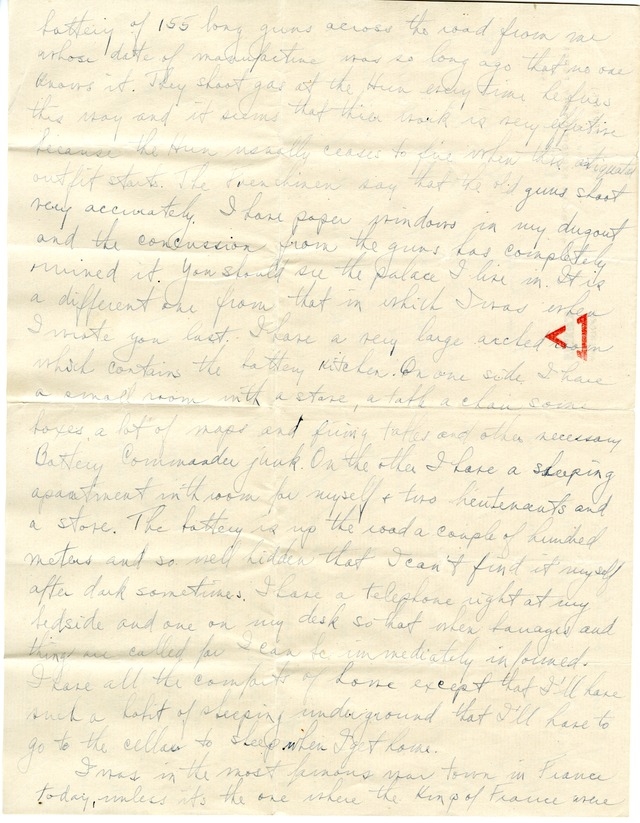 battery of 155 long guns across the road from me
whose date of manufacture was so long ago that no one
knows it. They shoot gas at the Hun every time he fires
this way and it seems that their work is very effective
because the Hun usually ceases to fire when this antiquated
outfit starts. The Frenchmen say that the old guns shoot
very accurately. I have paper windows in my dugout
and the concussion from the guns has completely
ruined it. You should see the palace I live in. It is
a different one from that in which I was when
I wrote you last. I have a very large arched room
which contains the battery kitchen. On one side I have
a small room with a stove, a table a chair some
boxes, a lot of maps and firing tables and other necessary
Battery Commander junk. On the other I have a sleeping
apartment with room for myself & two lieutenants and
a stove. The battery is up the road a couple of hundred
meters and so well hidden that I can't find it myself
after dark sometimes. I have a telephone right at my
bedside and one on my desk so that when barrages and
things are called for I can be immediately informed.
I have all the comforts of home except that I'll have
such a habit of sleeping underground that I'll have to
go to the cellar to sleep when I get home.
I was in the most famous war town in France
today, unless it's the one where the King of France were